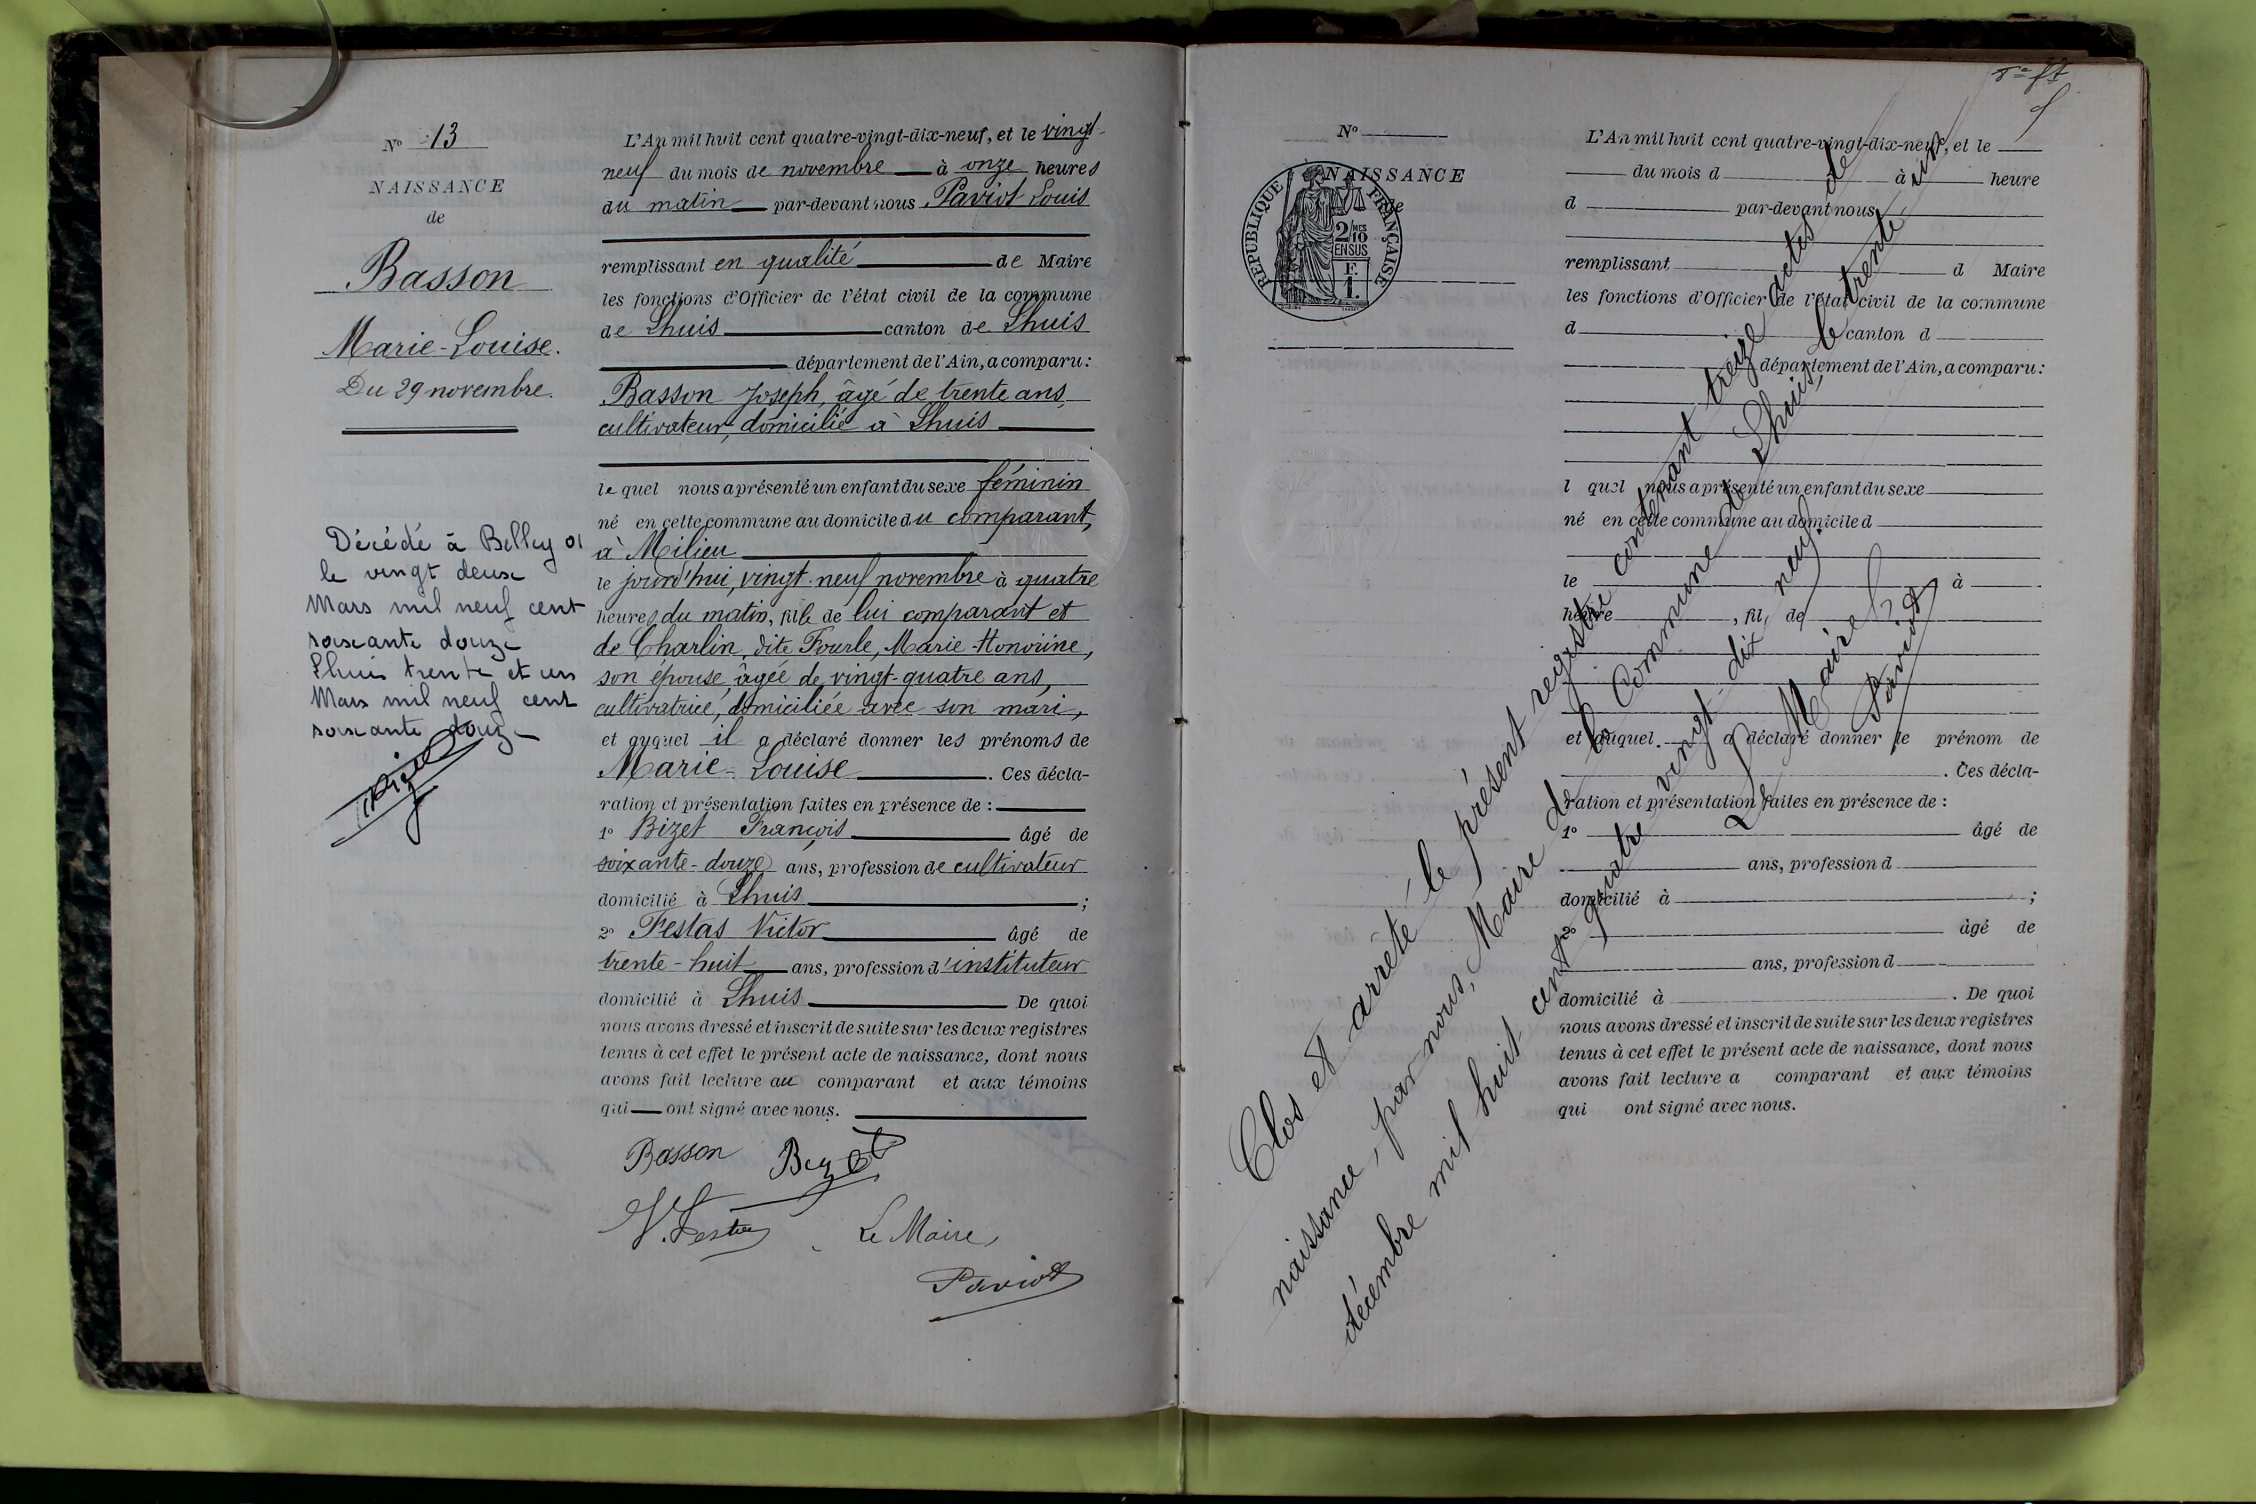 N° 13
NAISSANCE
de
Basson
Marie-Louise.
Du 29 novembre.
Décédé à Belley 01
le vingt deux
Mars mil neuf cent
soixante douze
Lhuis trente et un
Mars mil neuf cent
soixante douze
L'An mil huit cent quatre-vingt-dix-neuf, et le vingt-
neuf du mois de novembre à onze heures
du matin par-devant nous Paviot Louis
remplissant en qualité de Maire
les fonctions d'Officier de l'état civil de la commune
de Lhuis canton de Lhuis
département de l'Ain, a comparu :
Basson Joseph, âgé de trente ans,
cultivateur, domicilié à Lhuis
le quel nous a présenté un enfant du sexe féminin
né en cette commune au domicile du comparant,
à Milieu
le jourd'hui, vingt-neuf novembre à quatre
heures du matin, fille de lui comparant et
de Charlin, dite Fourle, Marie-Honorine,
son épouse, âgée de vingt-quatre ans,
cultivatrice, domiciliée avec son mari,
et auquel il a déclaré donner les prénoms de
Marie-Louise. Ces décla-
ration et présentation faites en présence de :
1° Bizet François âgé de
soixante-douze ans, profession de cultivateur
domicilié à Lhuis ;
2° Festas Victor âgé de
trente-huit ans, profession d'instituteur
domicilié à Lhuis De quoi
nous avons dressé et inscrit de suite sur les deux registres
tenus à cet effet le présent acte de naissance, dont nous
avons fait lecture au comparant et aux témoins
qui ont signé avec nous.
Basson Bizet
V. Festas Le Maire,
Paviot
N°
NAISSANCE
de
REPUBLIQUE FRANÇAISE
2/10 EN SUS
F. 1.
L'An mil huit cent quatre-vingt-dix-neuf, et le
du mois d à heure
d par-devant nous
remplissant d Maire
les fonctions d'Officier de l'état civil de la commune
d canton d
département de l'Ain, a comparu :
l quel nous a présenté un enfant du sexe
né en cette commune au domicile d
le à
heure , fil de
et auquel a déclaré donner le prénom de
. Ces décla-
ration et présentation faites en présence de :
1° âgé de
ans, profession d
domicilié à ;
2° âgé de
ans, profession d
domicilié à . De quoi
nous avons dressé et inscrit de suite sur les deux registres
tenus à cet effet le présent acte de naissance, dont nous
avons fait lecture a comparant et aux témoins
qui ont signé avec nous.
Clos et arrêté le présent registre contenant treize actes de
naissance, par nous, Maire de la Commune de Lhuis, le trente-un
décembre mil huit cent quatre vingt-dix neuf.
Le Maire
Paviot